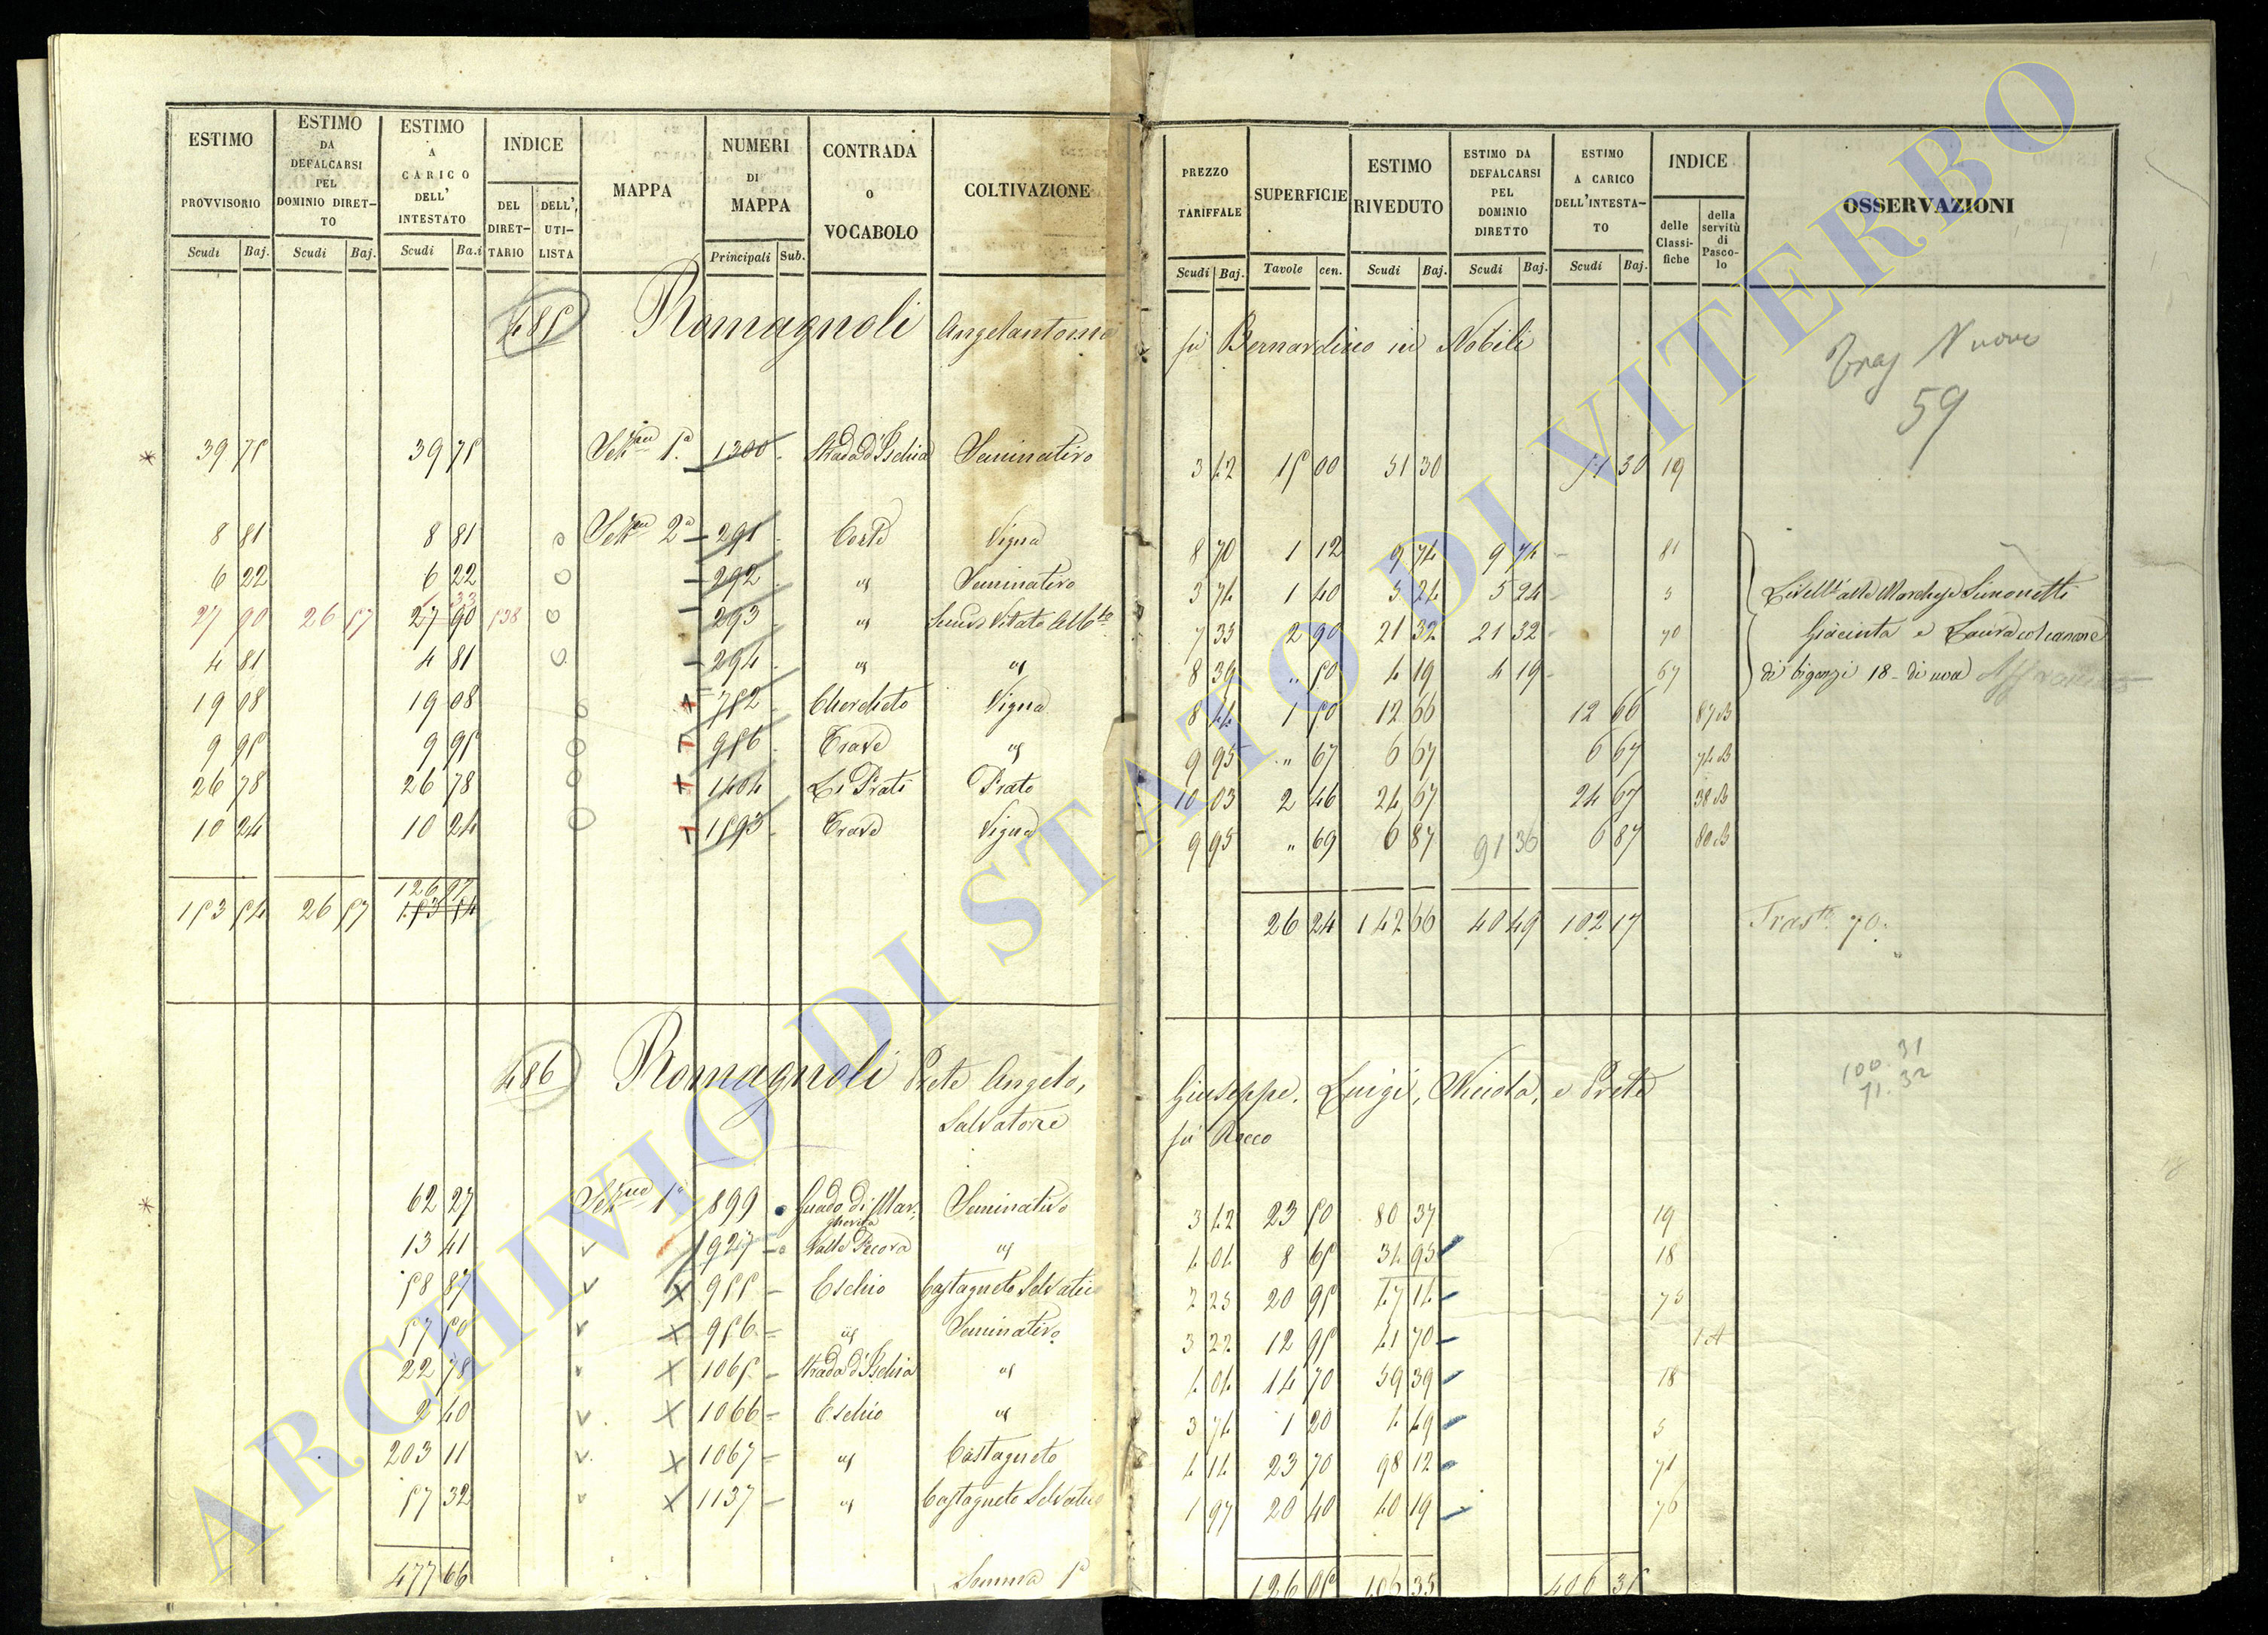 ESTIMO PROVVISORIO Scudi Baj.
ESTIMO DA DEFALCARSI PEL DOMINIO DIRETTO Scudi Baj.
ESTIMO A CARICO DELL' INTESTATO Scudi Ba.i
INDICE DEL DIRETTARIO DELL' UTILISTA
MAPPA
NUMERI DI MAPPA Principali Sub.
CONTRADA o VOCABOLO
COLTIVAZIONE
PREZZO TARIFFALE Scudi Baj.
SUPERFICIE Tavole cen.
ESTIMO RIVEDUTO Scudi Baj.
ESTIMO DA DEFALCARSI PEL DOMINIO DIRETTO Scudi Baj.
ESTIMO A CARICO DELL'INTESTATO Scudi Baj.
INDICE delle Classifiche della servitù di Pascolo
OSSERVAZIONI
485 Romagnoli Angelantonia fu Bernardino in Nobili
Nuovo
59
39 75 39 75 1ª 1300 Strada d'Ischia Seminativo 3 42 15 00 51 30 51 30 19
8 81 8 81 2ª 291 Vigna 8 70 1 12 9 74 9 74 81
6 22 6 22 292 Seminativo 3 74 1 40 5 24 5 24 3
27 90 26 57 27 90 538 293 7 35 2 90 21 32 21 32 70
4 81 4 81 294 8 39 " 50 4 19 4 19 67
Giacinta e Laura
18
19 08 19 08 752 Vigna 8 44 1 50 12 66 12 66 87 B
9 95 9 95 956 Trave 9 95 " 67 6 67 6 67 74 B
26 78 26 78 1404 Li Prati Prato 10 03 2 46 24 67 24 67 38 B
10 24 10 24 1593 Trave Vigna 9 95 " 69 6 87 91 36 6 87 80 B
126 97
153 54 26 57 153 54 26 24 142 66 40 49 102 17 70
486 Romagnoli Prete Angelo, Giuseppe, Luigi, Nicola, e Prete
Salvatore fu Rocco
100. 31
71. 32
62 27 1ª 899 Guado di Margherita Seminativo 3 42 23 50 80 37 19
13 41 927 Valle Pecora 4 04 8 65 34 95 18
58 87 955 Eschio Castagneto Selvatico 2 25 20 95 47 14 75
57 50 956 Seminativo 3 22 12 95 41 70 1 A
22 78 1065 Strada d'Ischia 4 04 14 70 59 39 18
2 40 1066 Eschio 3 74 1 20 4 49 3
203 11 1067 Castagneto 4 14 23 70 98 12 71
57 32 1137 Castagneto Selvatico 1 97 20 40 40 19 76
477 66 Somma 1ª 126 05 406 35 406 35
ARCHIVIO DI STATO DI VITERBO